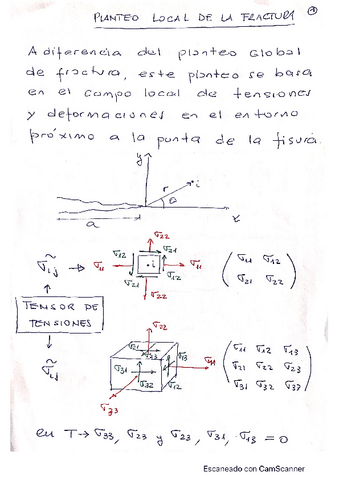 PLANTEO LOCAL DE LA FRACTURA
A diferencia del planteo Global
de fractura, este planteo se basa
en el campo local de tensiones
y deformaciones en el entorno
próximo a la punta de la fisura.
y
r
i
θ
a
x
σ22
σ12 σ21
σ̃ij → σ11 i σ11
σ21 σ12
σ22
σ11 σ12
σ21 σ22
TENSOR DE
TENSIONES
σ̃ij
σ22
σ21
σ23 σ13
σ31 σ11
σ32 σ12
σ33
σ11 σ12 σ13
σ21 σ22 σ23
σ31 σ32 σ33
en T → σ33, σ23 y σ23, σ31, σ13 = 0
Escaneado con CamScanner